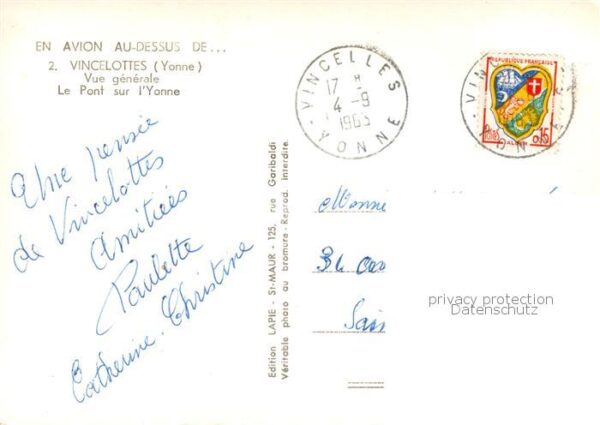 EN AVION AU-DESSUS DE...
2. VINCELOTTES (Yonne)
Vue générale
Le Pont sur l'Yonne
VINCELLES
17 H
4-9
1963
YONNE
REPUBLIQUE FRANÇAISE
POSTES
ALGER
0,15
Une pensée
de Vincelottes
Amitiées
Paulette
Catherine. Christine
Edition LAPIE - St-MAUR - 125, rue Garibaldi
Véritable photo au bromure - Reprod. interdite.
privacy protection
Datenschutz